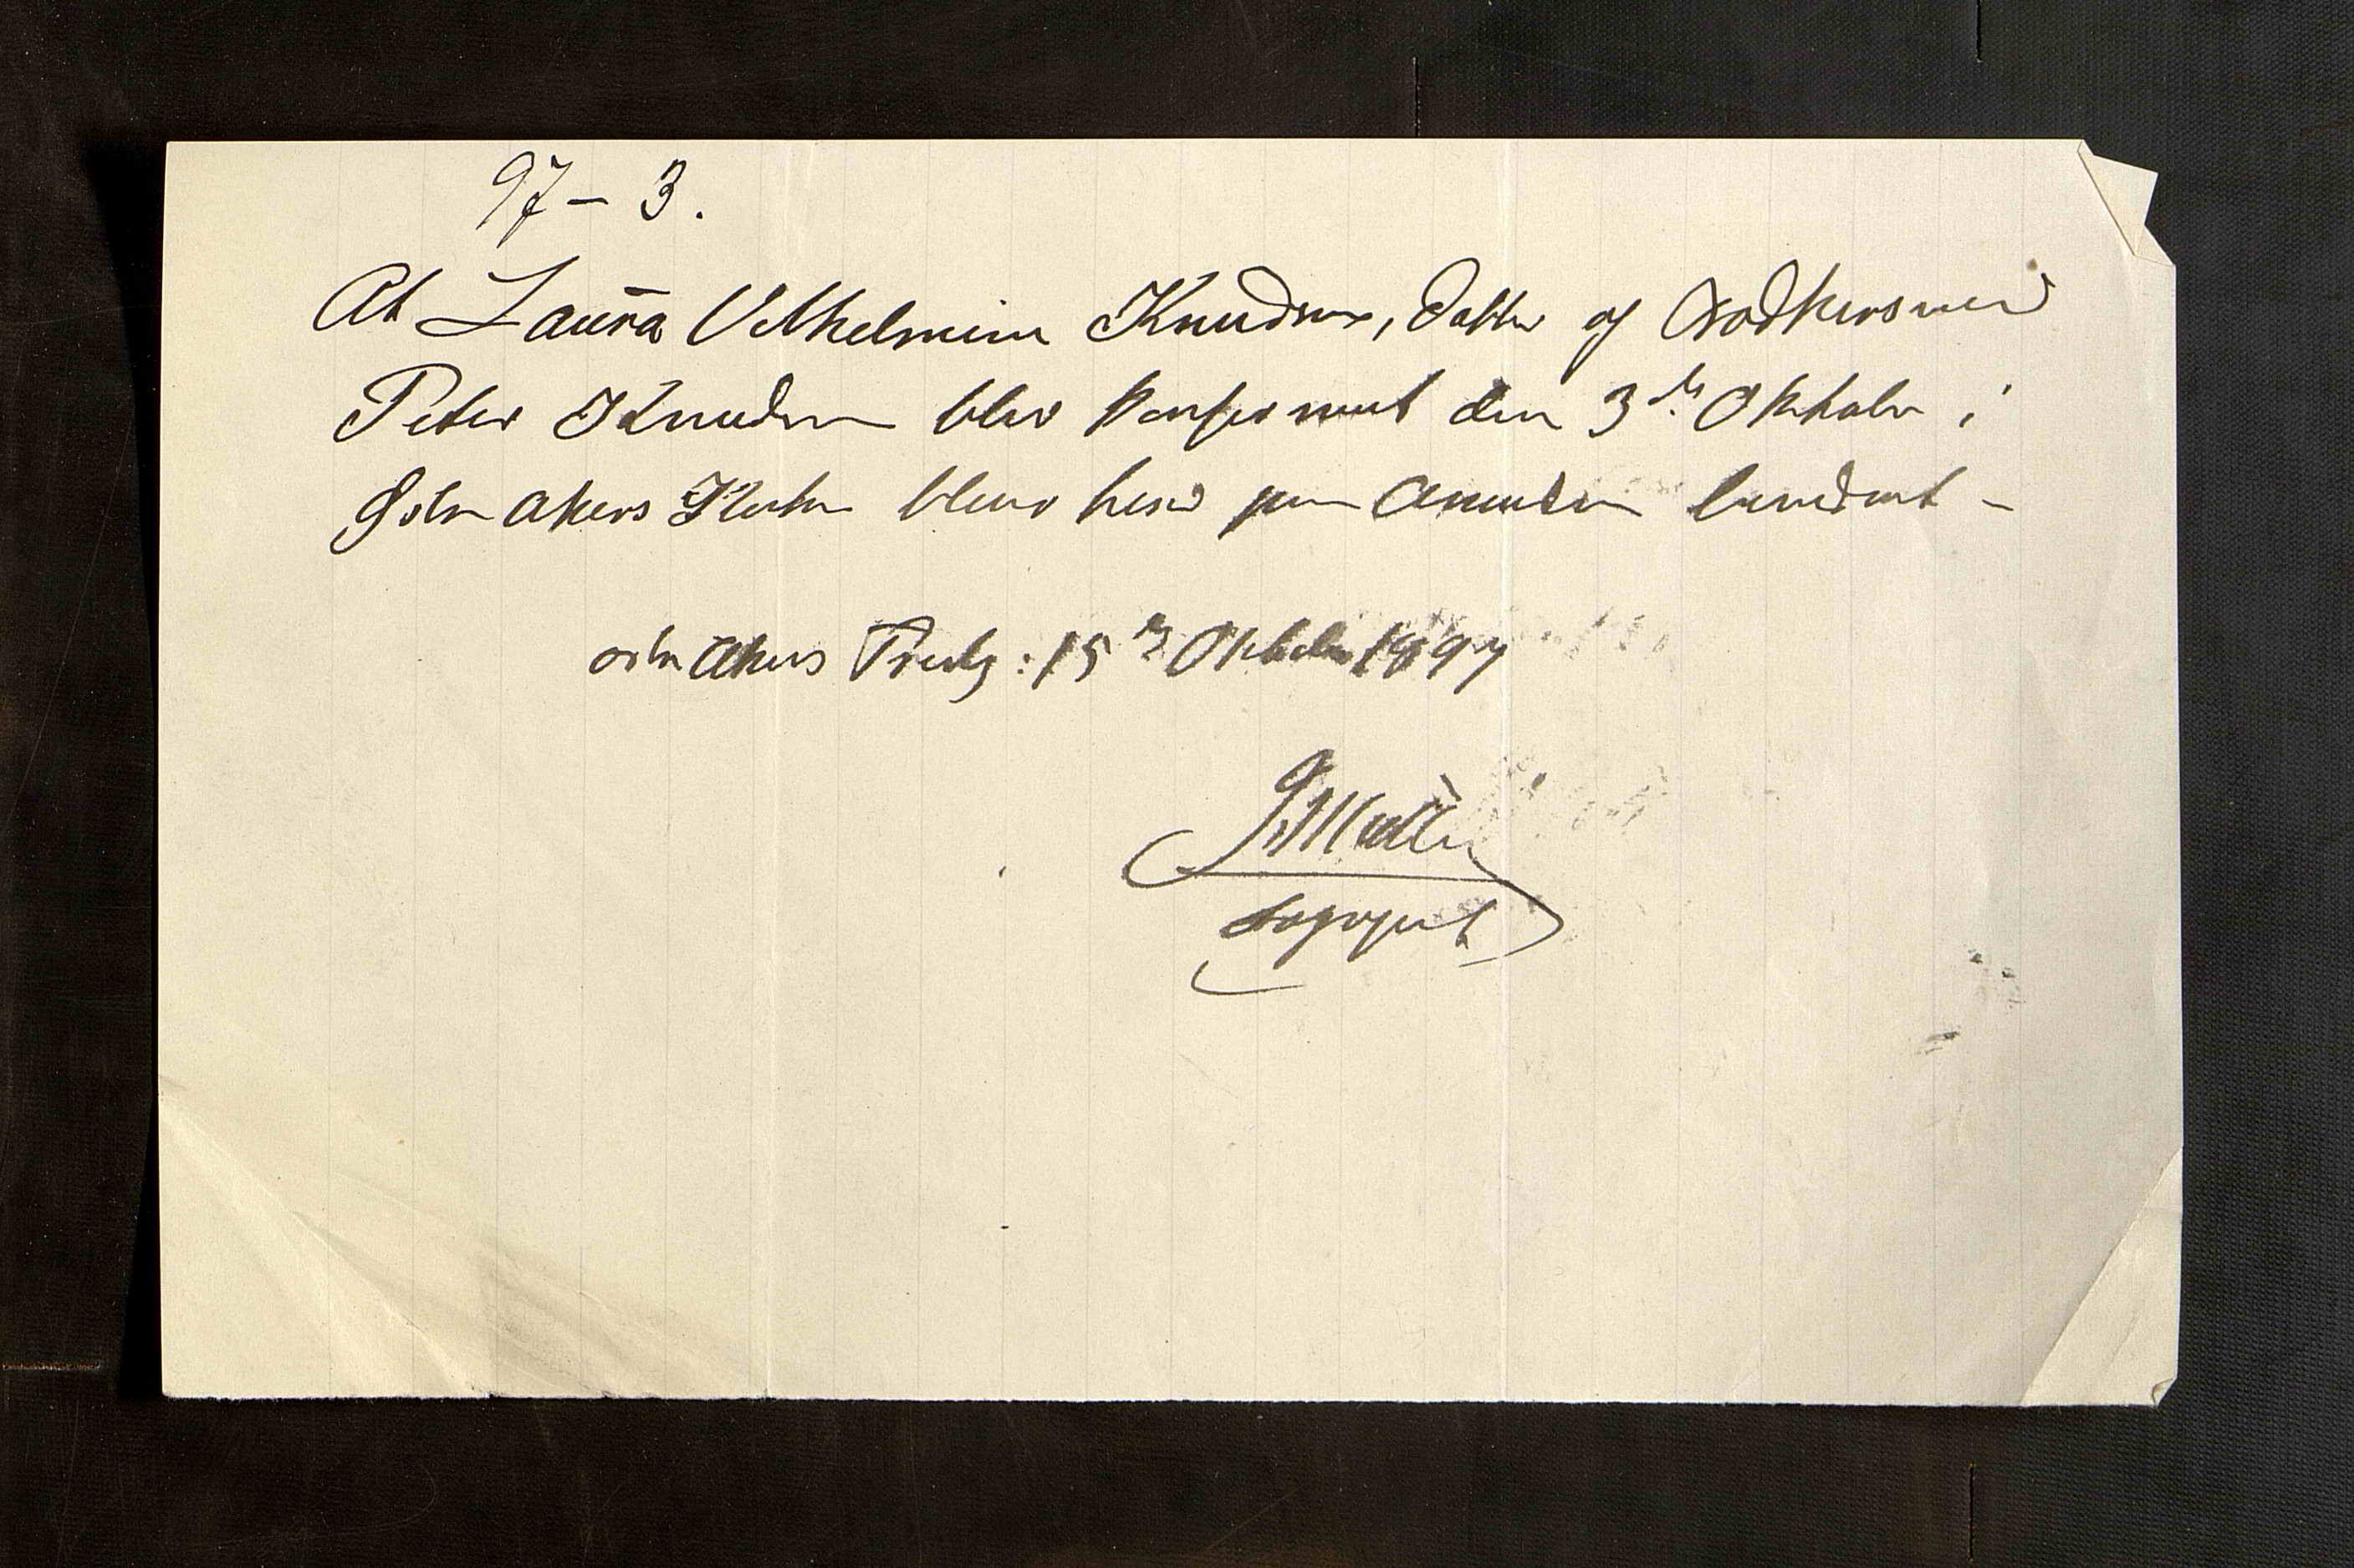 97 – 3.
At Laura Vilhelmine Knudsen, Datter af
Peter Knudsen blev konfirmert den 3die Oktober i
Østre Akers Kirke blever herved paa Anmodn bevidnet –
Østre Akers Præstg: 15de Oktober 1897
Møller
Sogneprest